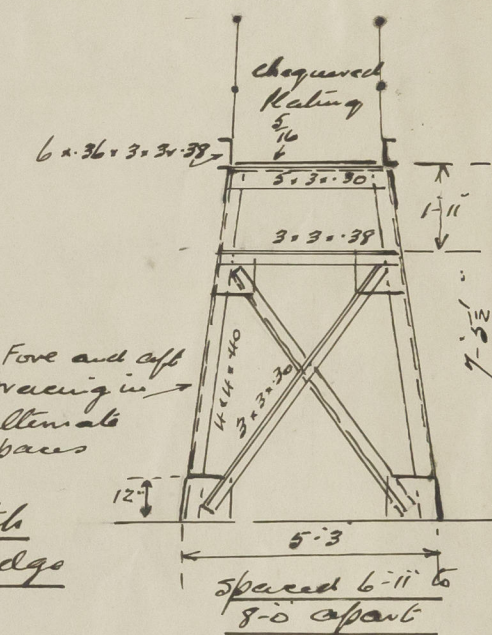 chequered
Plating
5/16
6 x .36 x 3 x 3 x .38
5 x 3 x .30
1-11"
3 x 3 x .38
7'-5½"
Fore and aft
racing in
lternate
paces
4 x 4 x .40
3 x 3 x .30
12"
5'-3"
dge
spaced 6'-11" to
8'-0 apart